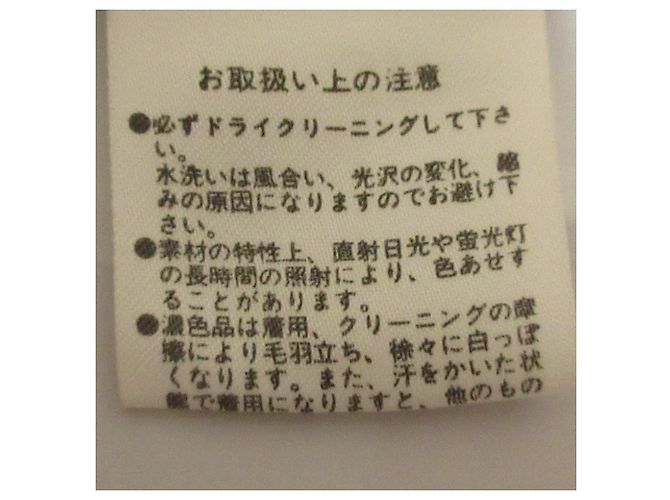 お取扱い上の注意
●必ずドライクリーニングして下さ
い。
水洗いは風合い、光沢の変化、縮
みの原因になりますのでお避け下
さい。
●素材の特性上、直射日光や蛍光灯
の長時間の照射により、色あせす
ることがあります。
●濃色品は着用、クリーニングの摩
擦により毛羽立ち、徐々に白っぽ
くなります。また、汗をかいた状
態で着用になりますと、他のもの